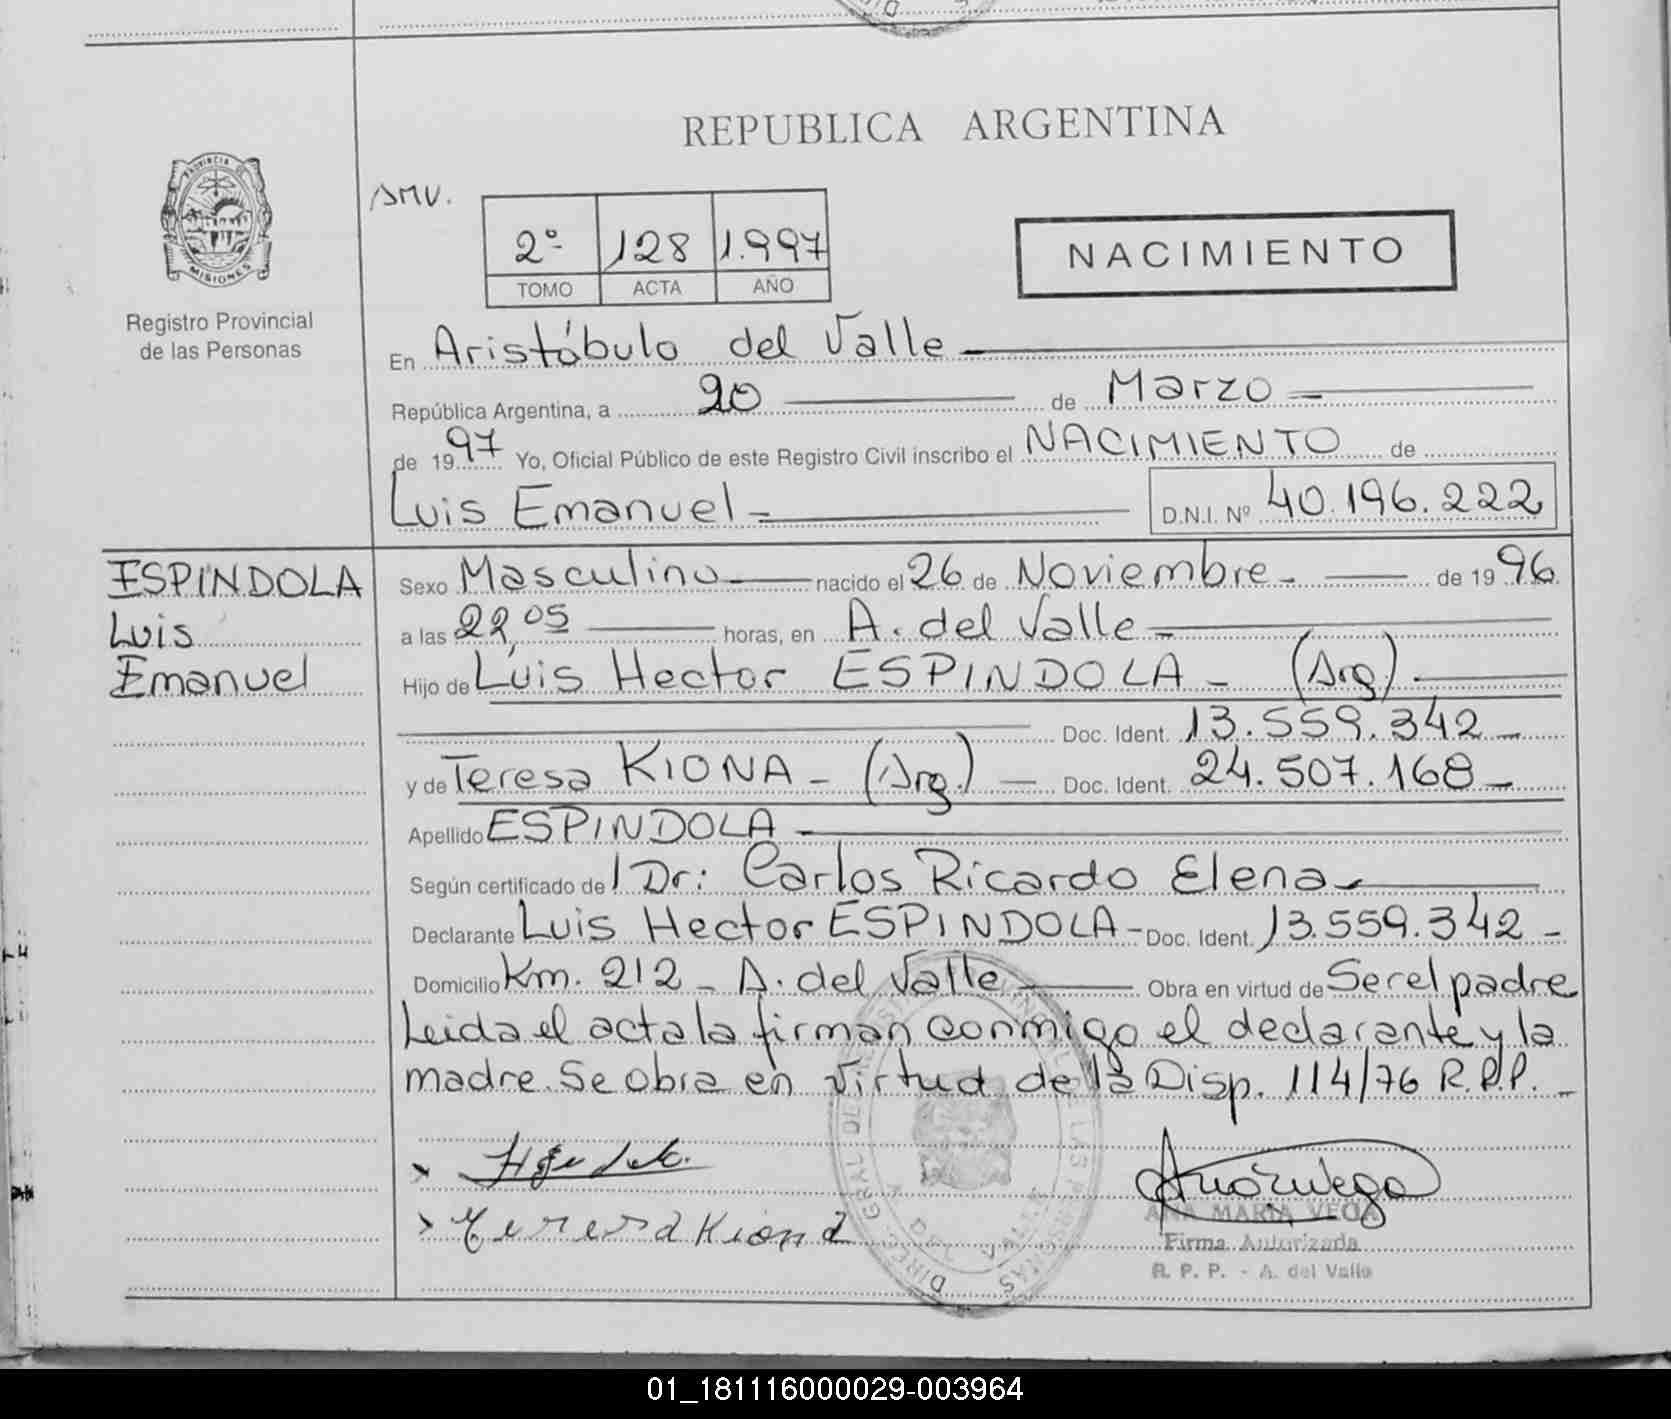 REPUBLICA ARGENTINA
PROVINCIA DE
MISIONES
Registro Provincial
de las Personas
SMV.
2º 128 1.997
TOMO ACTA AÑO
NACIMIENTO
En Aristóbulo del Valle
República Argentina, a 20 de Marzo
de 1997 Yo, Oficial Público de este Registro Civil inscribo el NACIMIENTO de
Luis Emanuel D.N.I. Nº 40.196.222
ESPINDOLA
Luis
Emanuel
Sexo Masculino nacido el 26 de Noviembre de 1996
a las 22,05 horas, en A. del Valle
Hijo de Luis Hector ESPINDOLA (Arg)
Doc. Ident. 13.559.342
y de Teresa KIONA (Arg.) Doc. Ident. 24.507.168
Apellido ESPINDOLA
Según certificado de Dr: Carlos Ricardo Elena
Declarante Luis Hector ESPINDOLA Doc. Ident. 13.559.342
Domicilio Km. 212 - A. del Valle Obra en virtud de Ser el padre
Leida el acta la firman conmigo el declarante y la
madre. Se obra en virtud de la Disp. 114/76 R.P.P.
Teresa Kiona
ANA MARIA VEGA
Firma Autorizada
R. P. P. - A. del Valle
01_181116000029-003964